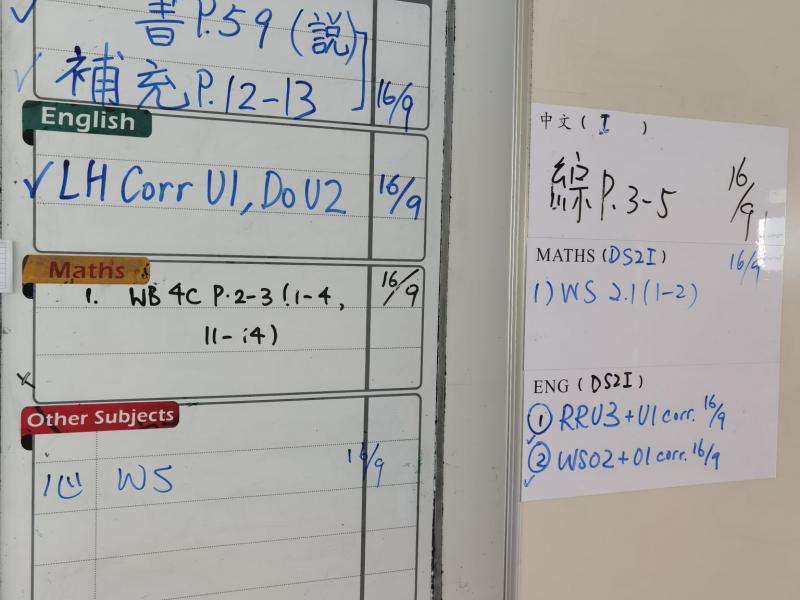 書 P.59 (說)
補充 P.12-13 16/9
English
LH Corr U1, Do U2 16/9
Maths
1. WB 4C P.2-3 (1-4, 16/9
11-14)
Other Subjects
心 WS 16/9
中文 ( I )
綜 P. 3-5 16/9
MATHS (DS2I) 16/9
1) WS 2.1 (1-2)
ENG (DS2I)
① RRU3 + U1 corr. 16/9
② WS02 + 01 corr. 16/9